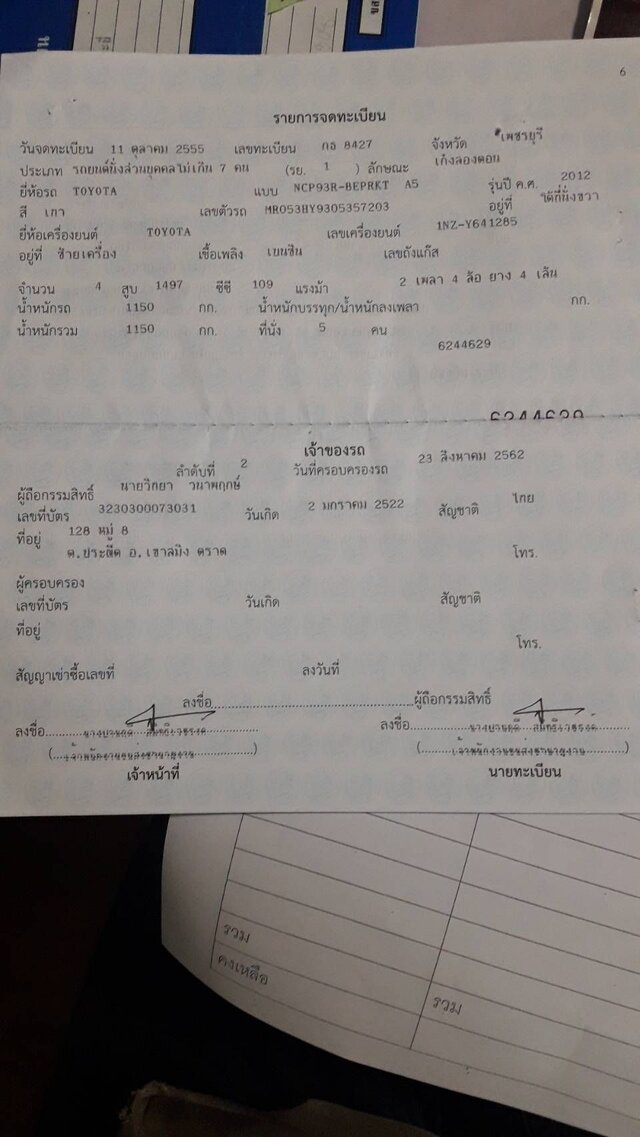 6
รายการจดทะเบียน
วันจดทะเบียน 11 ตุลาคม 2555 เลขทะเบียน กธ 8427 จังหวัด เพชรบุรี
ประเภท รถยนต์นั่งส่วนบุคคลไม่เกิน 7 คน (รย. 1 ) ลักษณะ เก๋งสองตอน
ยี่ห้อรถ TOYOTA แบบ NCP93R-BEPRKT A5 รุ่นปี ค.ศ. 2012
สี เทา เลขตัวรถ MR053HY9305357203 อยู่ที่ ใต้ที่นั่งขวา
ยี่ห้อเครื่องยนต์ TOYOTA เลขเครื่องยนต์ 1NZ-Y641285
อยู่ที่ ซ้ายเครื่อง เชื้อเพลิง เบนซิน เลขถังแก๊ส
จำนวน 4 สูบ 1497 ซีซี 109 แรงม้า 2 เพลา 4 ล้อ ยาง 4 เส้น
น้ำหนักรถ 1150 กก. น้ำหนักบรรทุก/น้ำหนักลงเพลา กก.
น้ำหนักรวม 1150 กก. ที่นั่ง 5 คน
6244629
6244629
เจ้าของรถ
ลำดับที่ 2 วันที่ครอบครองรถ 23 สิงหาคม 2562
ผู้ถือกรรมสิทธิ์ นายวิทยา วนาพฤกษ์
เลขที่บัตร 3230300073031 วันเกิด 2 มกราคม 2522 สัญชาติ ไทย
ที่อยู่ 128 หมู่ 8
ต.ประณีต อ.เขาสมิง ตราด โทร.
ผู้ครอบครอง
เลขที่บัตร วันเกิด สัญชาติ
ที่อยู่
โทร.
สัญญาเช่าซื้อเลขที่ ลงวันที่
ลงชื่อ ผู้ถือกรรมสิทธิ์
ลงชื่อ ลงชื่อ
(เจ้าพนักงานขนส่งชำนาญงาน) (เจ้าพนักงานขนส่งชำนาญงาน)
เจ้าหน้าที่ นายทะเบียน
รวม
คงเหลือ
รวม